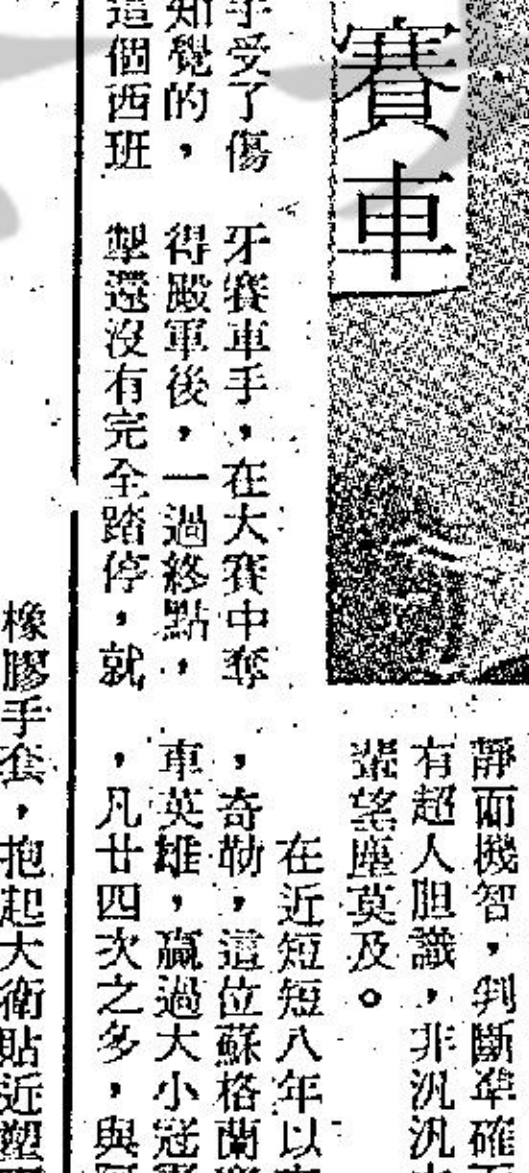 賽車
手受了傷
知覺的，
這個西班
牙賽車手，在大賽中奪
得殿軍後，一過終點，
掣還沒有完全踏停，就
靜而機智，判斷準確
有超人胆識，非汎汎
輩望塵莫及。
在近短短八年以
，奇勒，這位蘇格蘭
車英雄，贏過大小冠軍
，凡廿四次之多，與
橡膠手套，抱起大衛貼近塑